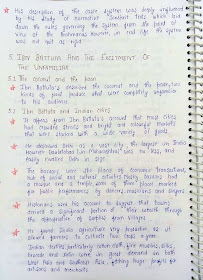 His description of the caste system was deeply influenced
by his study of normative Sanskrit texts which laid
down the rules governing the system from the point of
view of the Brahmanas. However, in real life the system
was not quite as rigid.
5. IBN BATTUTA AND THE EXCITEMENT OF
THE UNFAMILIAR
5.1 The coconut and the paan
Ibn Battuta described the coconut and the paan, two
kinds of plant produce that were completely unfamiliar
to his audience.
5.2 Ibn Battuta and Indian cities
It appears from Ibn Battuta's account that most cities
had crowded streets and bright and colourful markets
that were stacked with a wide variety of goods.
He described Delhi as a vast city, the largest in India
However, Daulatabad (in Maharashtra) was no less, and
easily rivalled Delhi in size.
The bazaars were also places of commercial transactions,
hub of social and cultural activities. Mostly bazaars had
a mosque and a temple, some of them places marked
for public performances by dancers, musicians and singers.
Historians used his account to suggest that towns
derived a significant portion of their wealth through
the appropriation of surplus from villages.
He found Indian agriculture very productive as it
allowed farmers to cultivate two crops a year.
Indian textiles, particularly cotton cloth, fine muslins, silks,
brocade and satin were in great demand in both
West Asia and Southeast Asia, fetching huge profits for
artisans and merchants.